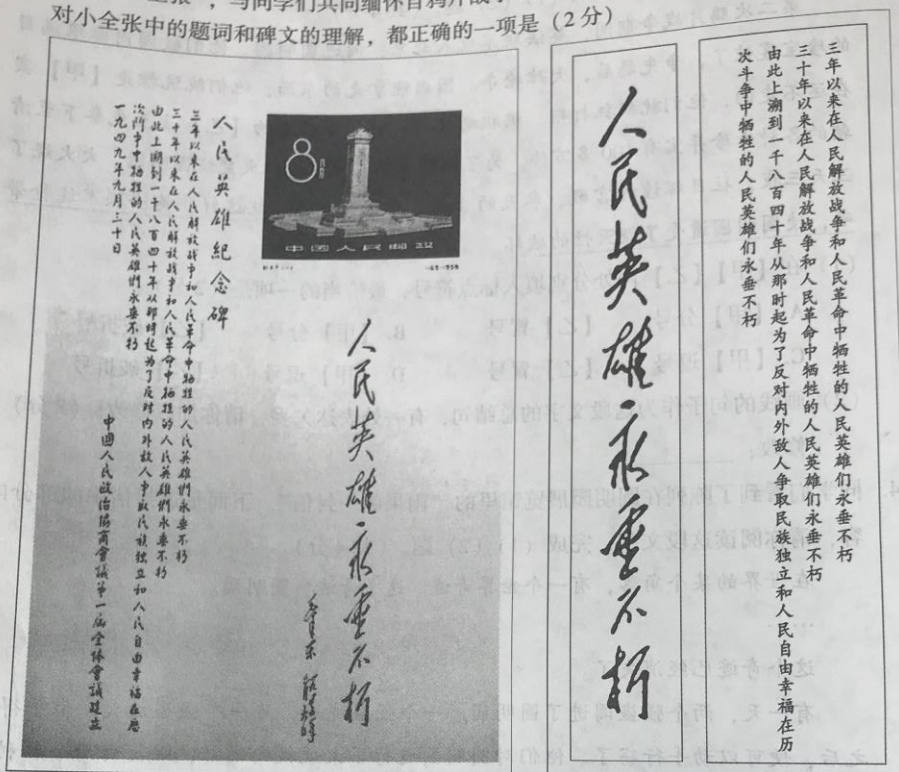 张"，与同学们共同缅怀自鸦片战
对小全张中的题词和碑文的理解，都正确的一项是（2分）
8
中国人民邮政
人民英雄紀念碑
三年以来在人民解放战争和人民革命中牺牲的人民英雄們永垂不朽
三十年以来在人民解放战争和人民革命中牺牲的人民英雄們永垂不朽
由此上溯到一千八百四十年从那时起为了反对内外敌人争取民族独立和人民自由幸福在历
次鬥争中牺牲的人民英雄們永垂不朽
一九四九年九月三十日
中國人民政治協商會議第一屆全体會議建立
人民英雄永垂不朽
毛泽东
人民英雄永垂不朽
三年以来在人民解放战争和人民革命中牺牲的人民英雄们永垂不朽
三十年以来在人民解放战争和人民革命中牺牲的人民英雄们永垂不朽
由此上溯到一千八百四十年从那时起为了反对内外敌人争取民族独立和人民自由幸福在历
次斗争中牺牲的人民英雄们永垂不朽